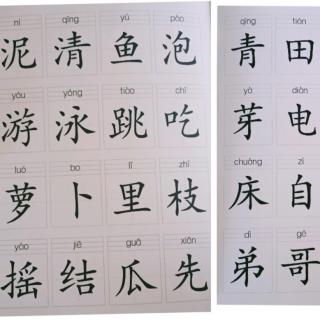 ní qīng yú pào
泥 清 鱼 泡
yóu yǒng tiào chī
游 泳 跳 吃
luó bo lǐ zhī
萝 卜 里 枝
yáo jiē guā xiān
摇 结 瓜 先
qīng tián
青 田
yá diàn
芽 电
chuáng zì
床 自
dì gē
弟 哥